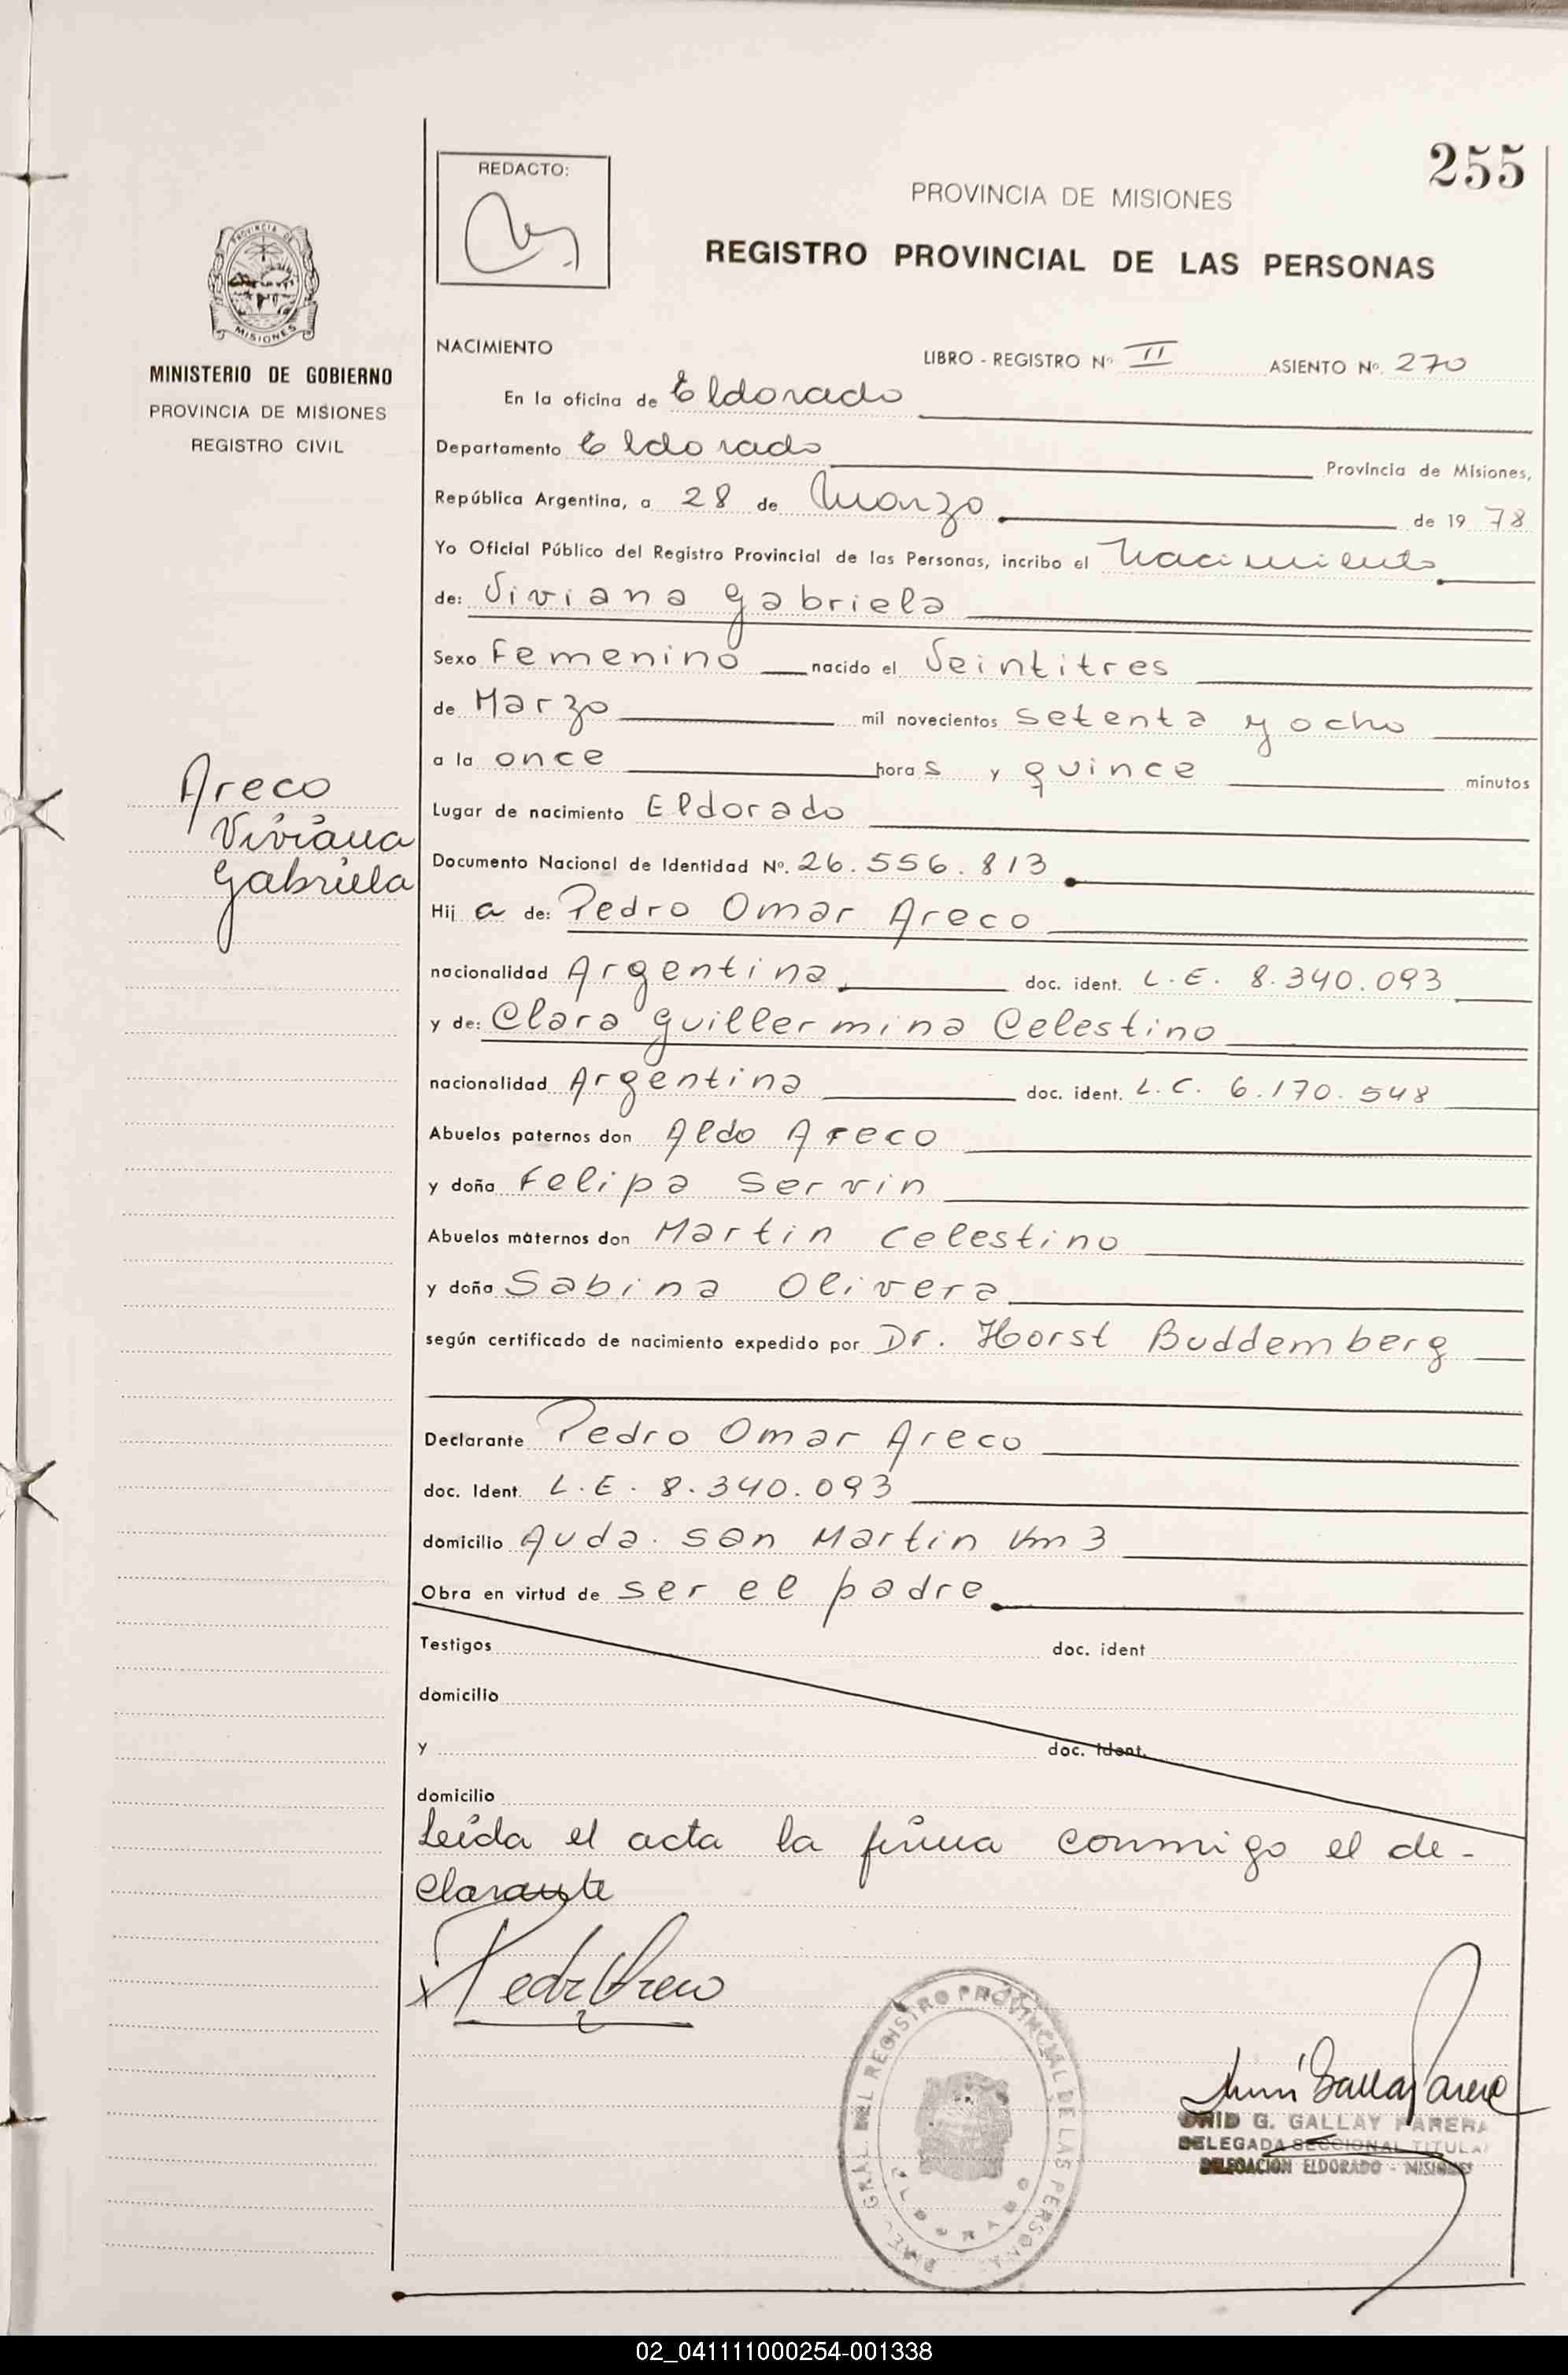 255
REDACTO:
PROVINCIA DE MISIONES
REGISTRO PROVINCIAL DE LAS PERSONAS
PROVINCIA DE
MISIONES
MINISTERIO DE GOBIERNO
PROVINCIA DE MISIONES
REGISTRO CIVIL
NACIMIENTO LIBRO - REGISTRO Nº II ASIENTO Nº. 270
En la oficina de Eldorado
Departamento Eldorado Provincia de Misiones,
República Argentina, a 28 de Marzo de 19 78
Yo Oficial Público del Registro Provincial de las Personas, incribo el Nacimiento
de: Viviana Gabriela
Sexo Femenino nacido el Veintitres
de Marzo mil novecientos setenta y ocho
a la once horas y quince minutos
Areco
Viviana
Gabriela
Lugar de nacimiento Eldorado
Documento Nacional de Identidad Nº. 26.556.813
Hij a de: Pedro Omar Areco
nacionalidad Argentina doc. ident. L.E. 8.340.093
y de: Clara Guillermina Celestino
nacionalidad Argentina doc. ident. L.C. 6.170.548
Abuelos paternos don Aldo Areco
y doña Felipa Servin
Abuelos maternos don Martin Celestino
y doña Sabina Olivera
según certificado de nacimiento expedido por Dr. Horst Buddemberg
Declarante Pedro Omar Areco
doc. Ident. L.E. 8.340.093
domicilio Avda. San Martin Km 3
Obra en virtud de ser el padre
Testigos doc. ident
domicilio
y doc. ident.
domicilio
Leída el acta la firma conmigo el de-
clarante
x Pedro Areco
DIREC. GRAL. DEL REGISTRO PROVINCIAL DE LAS PERSONAS
ELDORADO
G. GALLAY PARERA
DELEGADA SECCIONAL TITULAR
DELEGACION ELDORADO - MISIONES
02_041111000254-001338